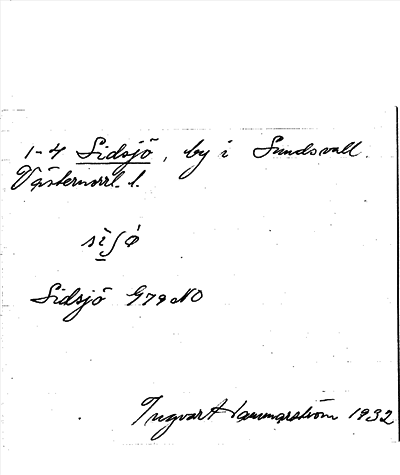 1-4 Sidsjö, by i Sundsvall.
Västernorrl. l.
sìʃǿ
Sidsjö G79 NO
Ingvar Hammarström 1932